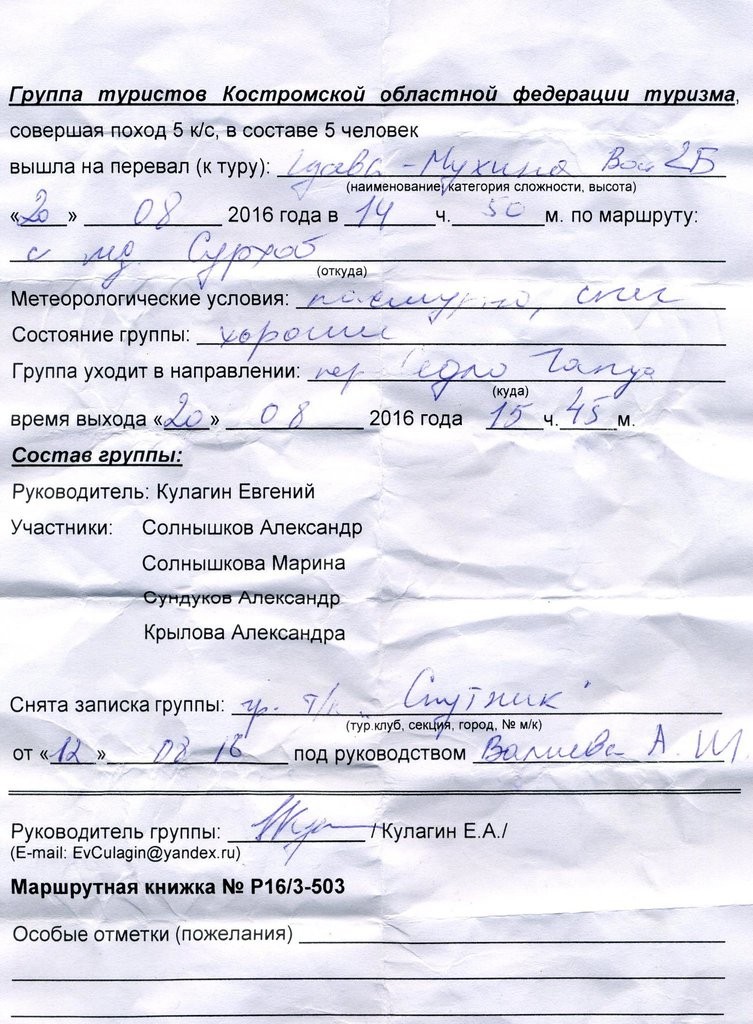 Группа туристов Костромской областной федерации туризма,
совершая поход 5 к/с, в составе 5 человек
вышла на перевал (к туру): -Мухина 2Б
(наименование, категория сложности, высота)
«20» 08 2016 года в 14 ч. 50 м. по маршруту:
с лд. Сурхоб
(откуда)
Метеорологические условия: пасмурно, снег
Состояние группы: хорошее
Группа уходит в направлении: пер.
(куда)
время выхода «20» 08 2016 года 15 ч. 45 м.
Состав группы:
Руководитель: Кулагин Евгений
Участники: Солнышков Александр
Солнышкова Марина
Сундуков Александр
Крылова Александра
Снята записка группы: гр. т/к "Спутник"
(тур.клуб, секция, город, № м/к)
от «12» 08 16 под руководством Валиева А. Ш.
Руководитель группы: /Кулагин Е.А./
(E-mail: EvCulagin@yandex.ru)
Маршрутная книжка № Р16/3-503
Особые отметки (пожелания)